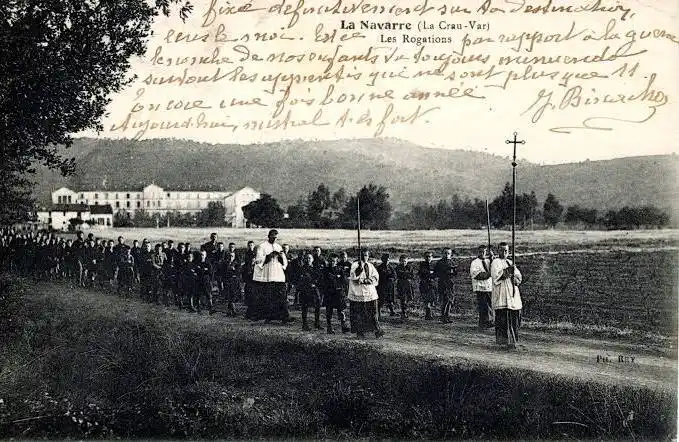 fixé définitivement sur sa destination,
La Navarre (La Crau-Var)
Les Rogations
dites le moi. Est-ce par rapport à la guerre
le nombre de nos enfants va toujours minuendo
surtout les apprentis qui ne sont plus que 11
Encore une fois bonne année
Aujourd'hui, mistral très fort.
PH. REY